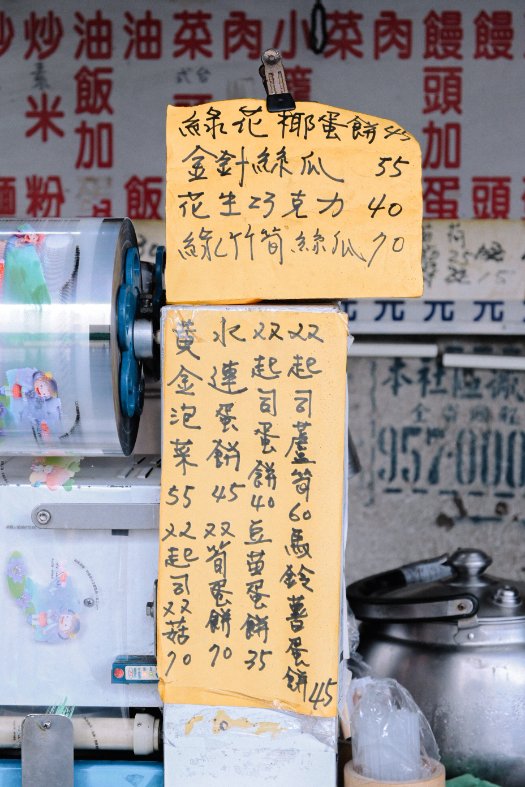 綠花椰蛋餅45
金針絲瓜 55
花生巧克力 40
綠竹筍絲瓜70
双起司蘆筍60馬鈴薯蛋餅45
双起司蛋餅40豆苗蛋餅35
水蓮蛋餅45双筍蛋餅70
黃金泡菜55双起司双菇70
饅
饅頭蛋
饅頭
肉
菜
小
肉
菜
油
油飯加
炒米粉
炒
飯
元元元元
本社區
957-000